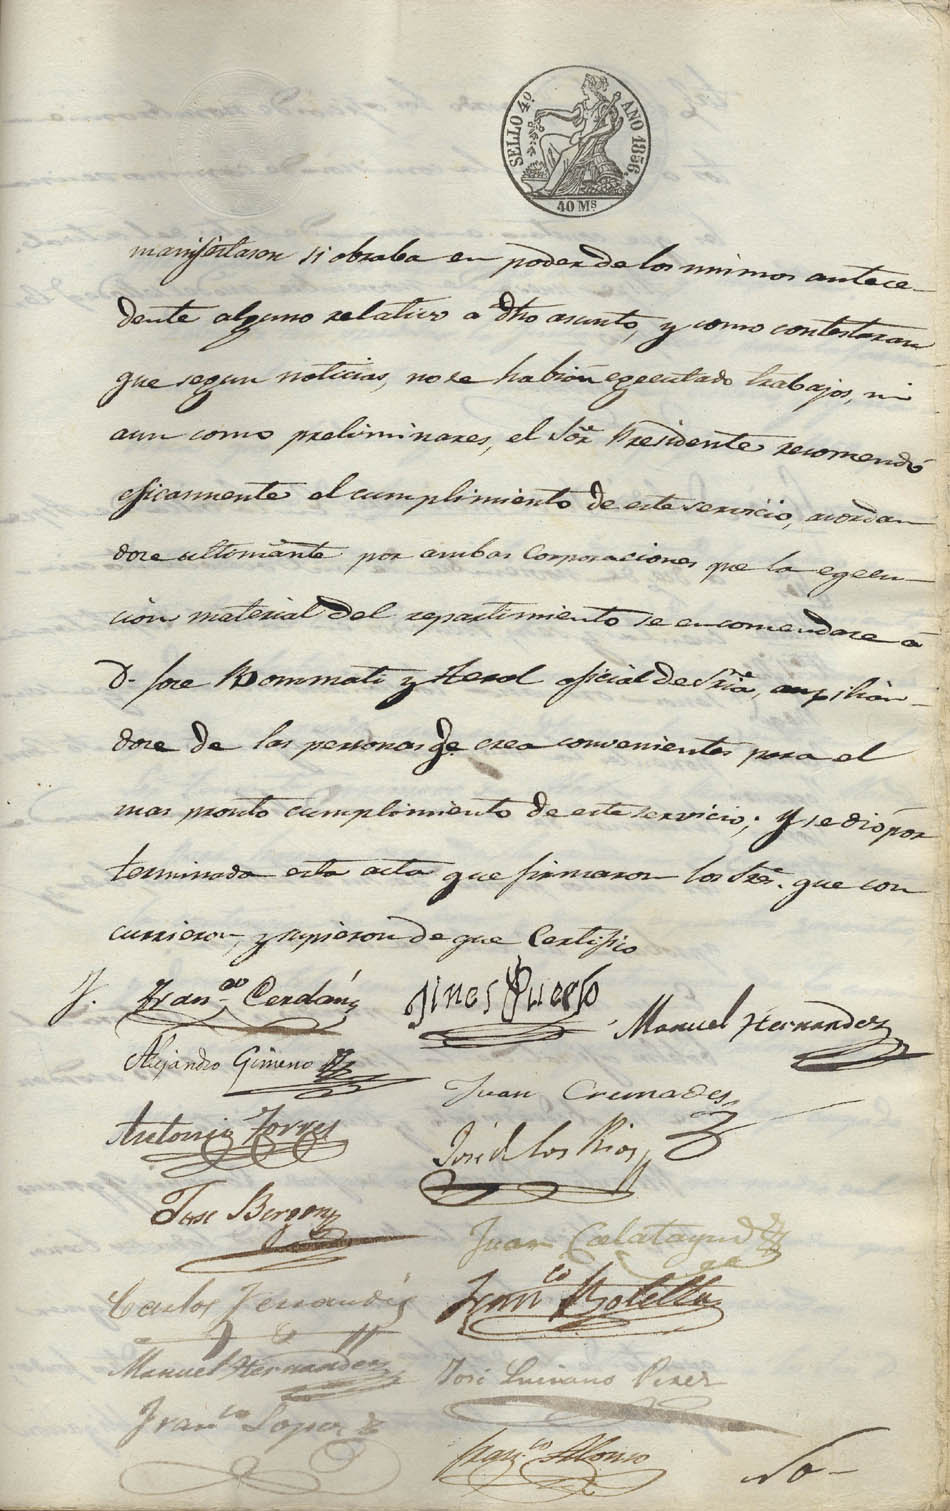 SELLO 4º AÑO 1856.
40 Ms
manifestaron si obraba en poder de los mimos antece-
dente alguno relativo a dho asunto, y como contestaran
que segun noticias, no se habian egecutado trabajos, ni
aun como preliminares, el Sor Presidente recomendó
eficasmente el cumplimiento de este servicio, acordan
dose ultimante por ambas Corporaciones que la egecu-
cion material del repartimiento se encomendase á
D. Jose Rommati y Terol oficial de Sria, ausilian-
dose de las personas qe crea convenientes para el
mas pronto cumplimiento de este servicio; y se dió por
terminada esta acta que firmaron los Sres. que con
currieron, y supieron de que Certifico
Franco Cerdán
Gines Puerto
Manuel Hernandez
Alejandro Gimeno
Juan Cremades
Antonio Torres
José d los Rios
Jose
Juan Calatayud
Carlos Ferrandiz
Franco Botella
Manuel Hernandez
José Luciano Perez
Franco Lopez
Franco Alonso